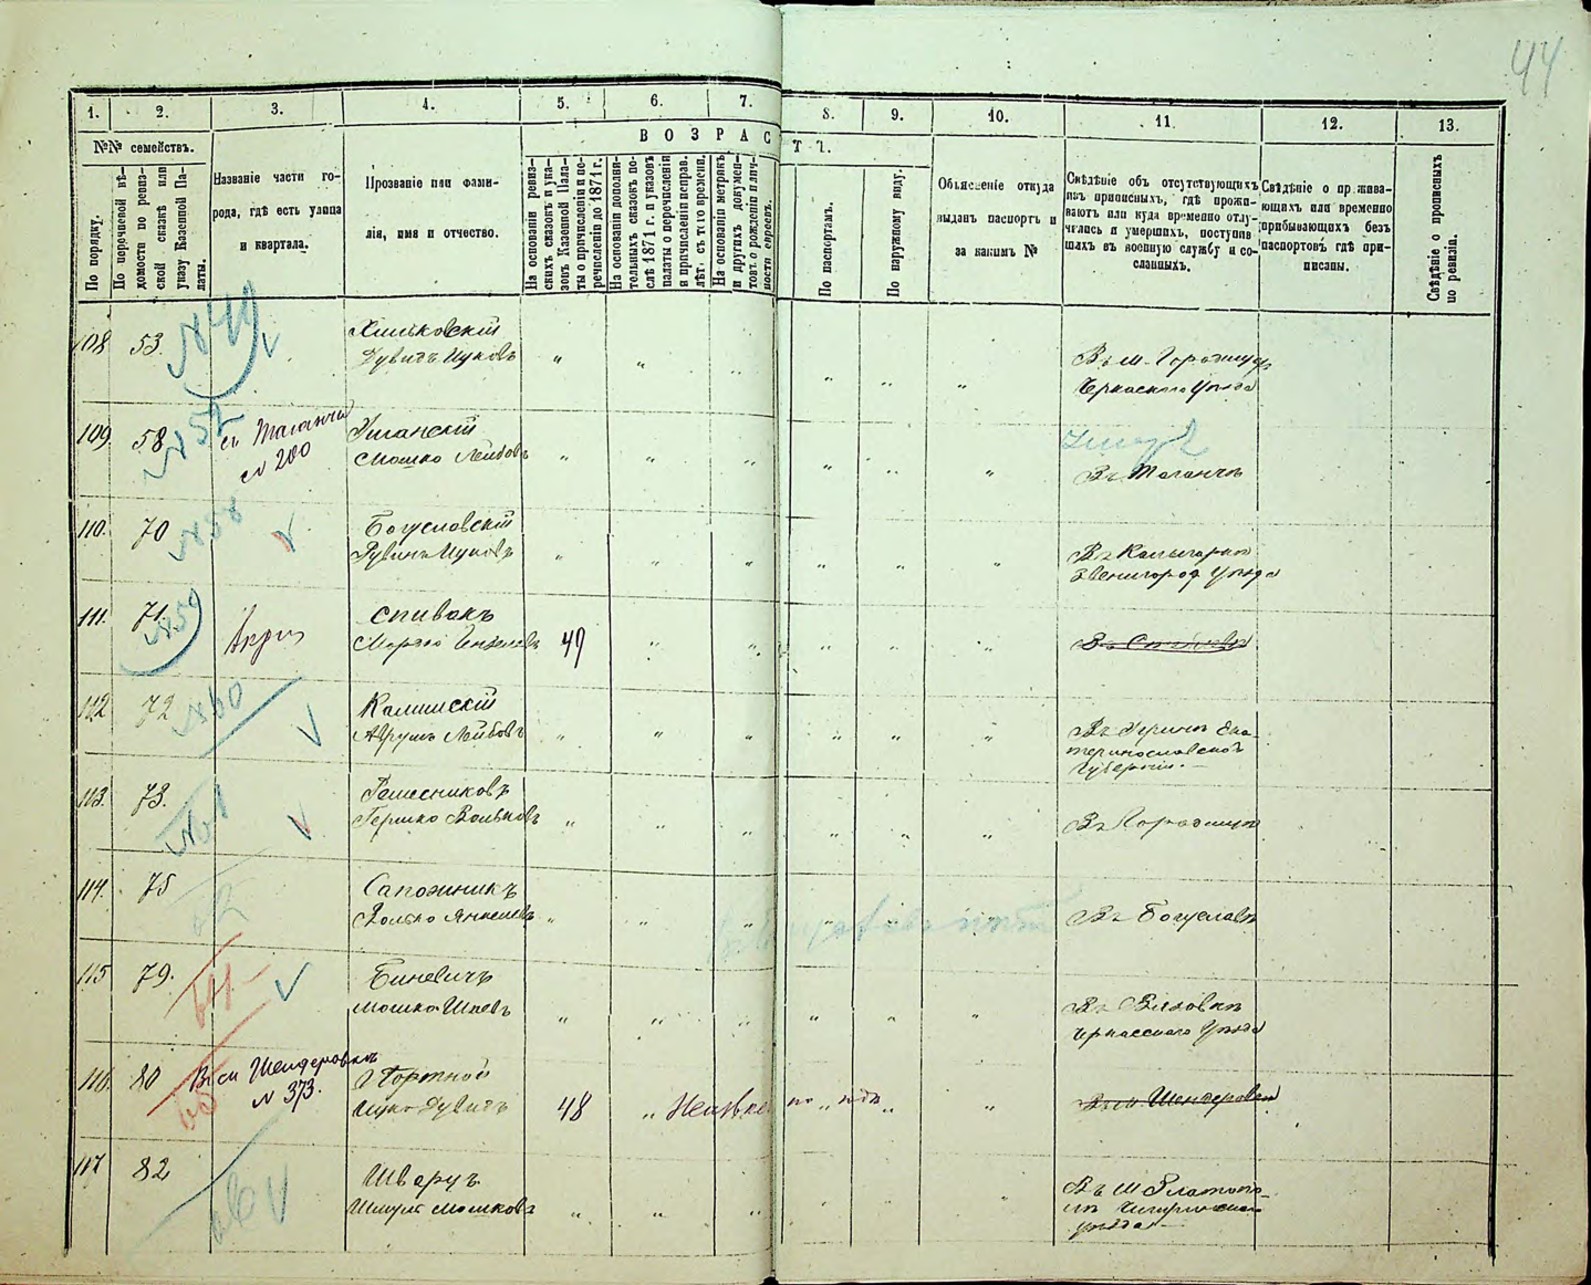 44
1. 2. 3. 4. 5. 6. 7. 8. 9. 10. 11. 12. 13.
№№ семействъ.
По порядку.
По перечневой вѣ-
домости по ревиз-
ской сказкѣ или
указу Казенной Па-
латы.
Названіе части го-
рода, гдѣ есть улица
и квартала.
Прозваніе или фами-
лія, имя и отчество.
ВОЗРАСТЪ.
На основаніи ревиз-
скихъ сказокъ и ука-
зовъ Казенной Пала-
ты о причисленіи и пе-
речисленіи до 1871 г.
На основаніи дополни-
тельныхъ сказокъ по-
слѣ 1871 г. и указовъ
палаты о перечисленіи
и причисленіи исправ.
лѣт. съ того времени.
На основаніи метрикъ
и другихъ докумен-
товъ о рожденіи и лич-
ности евреевъ.
По паспортамъ.
По наружному виду.
Объясненіе откуда
выданъ паспортъ и
за какимъ №
Свѣдѣніе объ отсутствующихъ
изъ приписныхъ, гдѣ прожи-
ваютъ или куда временно отлу-
чились и умершихъ, поступив
шихъ въ военную службу и со-
сланныхъ.
Свѣдѣніе о прожива-
ющихъ или временно
прибывающихъ безъ
паспортовъ гдѣ при-
писаны.
Свѣдѣніе о прописныхъ
по ревизіи.
108 53. №49 Хильковскій
Дувидъ Ицковъ " " " " " " Въ м. Городищѣ
Черкаскаго уѣзда
109. 58 №52 см Таганчи
№ 200 Уманскій
Мошко Лейбовъ " " " " " " Въ Таганчѣ
110. 70 №58 Богуславскій
Рувинъ Ицковъ " " " " " "
Звенигород. уѣзда
111. 71. №59 Спивакъ
49 " " " " "
112 72 №60 Калишскій
Аврумъ Лейбовъ " " " " " " Ека-
теринославской
Губерніи.
113. 73. Ремесниковъ
Гершко Вольковъ " " " " " " Въ Городищѣ
114. 75 Сапожникъ
Волько Янкелевъ " " " " " " Въ Богуславѣ
115 79. 64. Биневичъ
Мошко Шаевъ " " " " " " Въ Вязовкѣ
Черкасскаго уѣзда
116. 80 65 Въ см Шендеровкѣ
№ 373. Портной
Ицко Дувидъ 48 " " " " Въ м. Шендеровкѣ
117 82 Шварцъ
Шмуль Мошковъ " " " " " Въ м Златопо-
лѣ Чигиринскаго
уѣзда